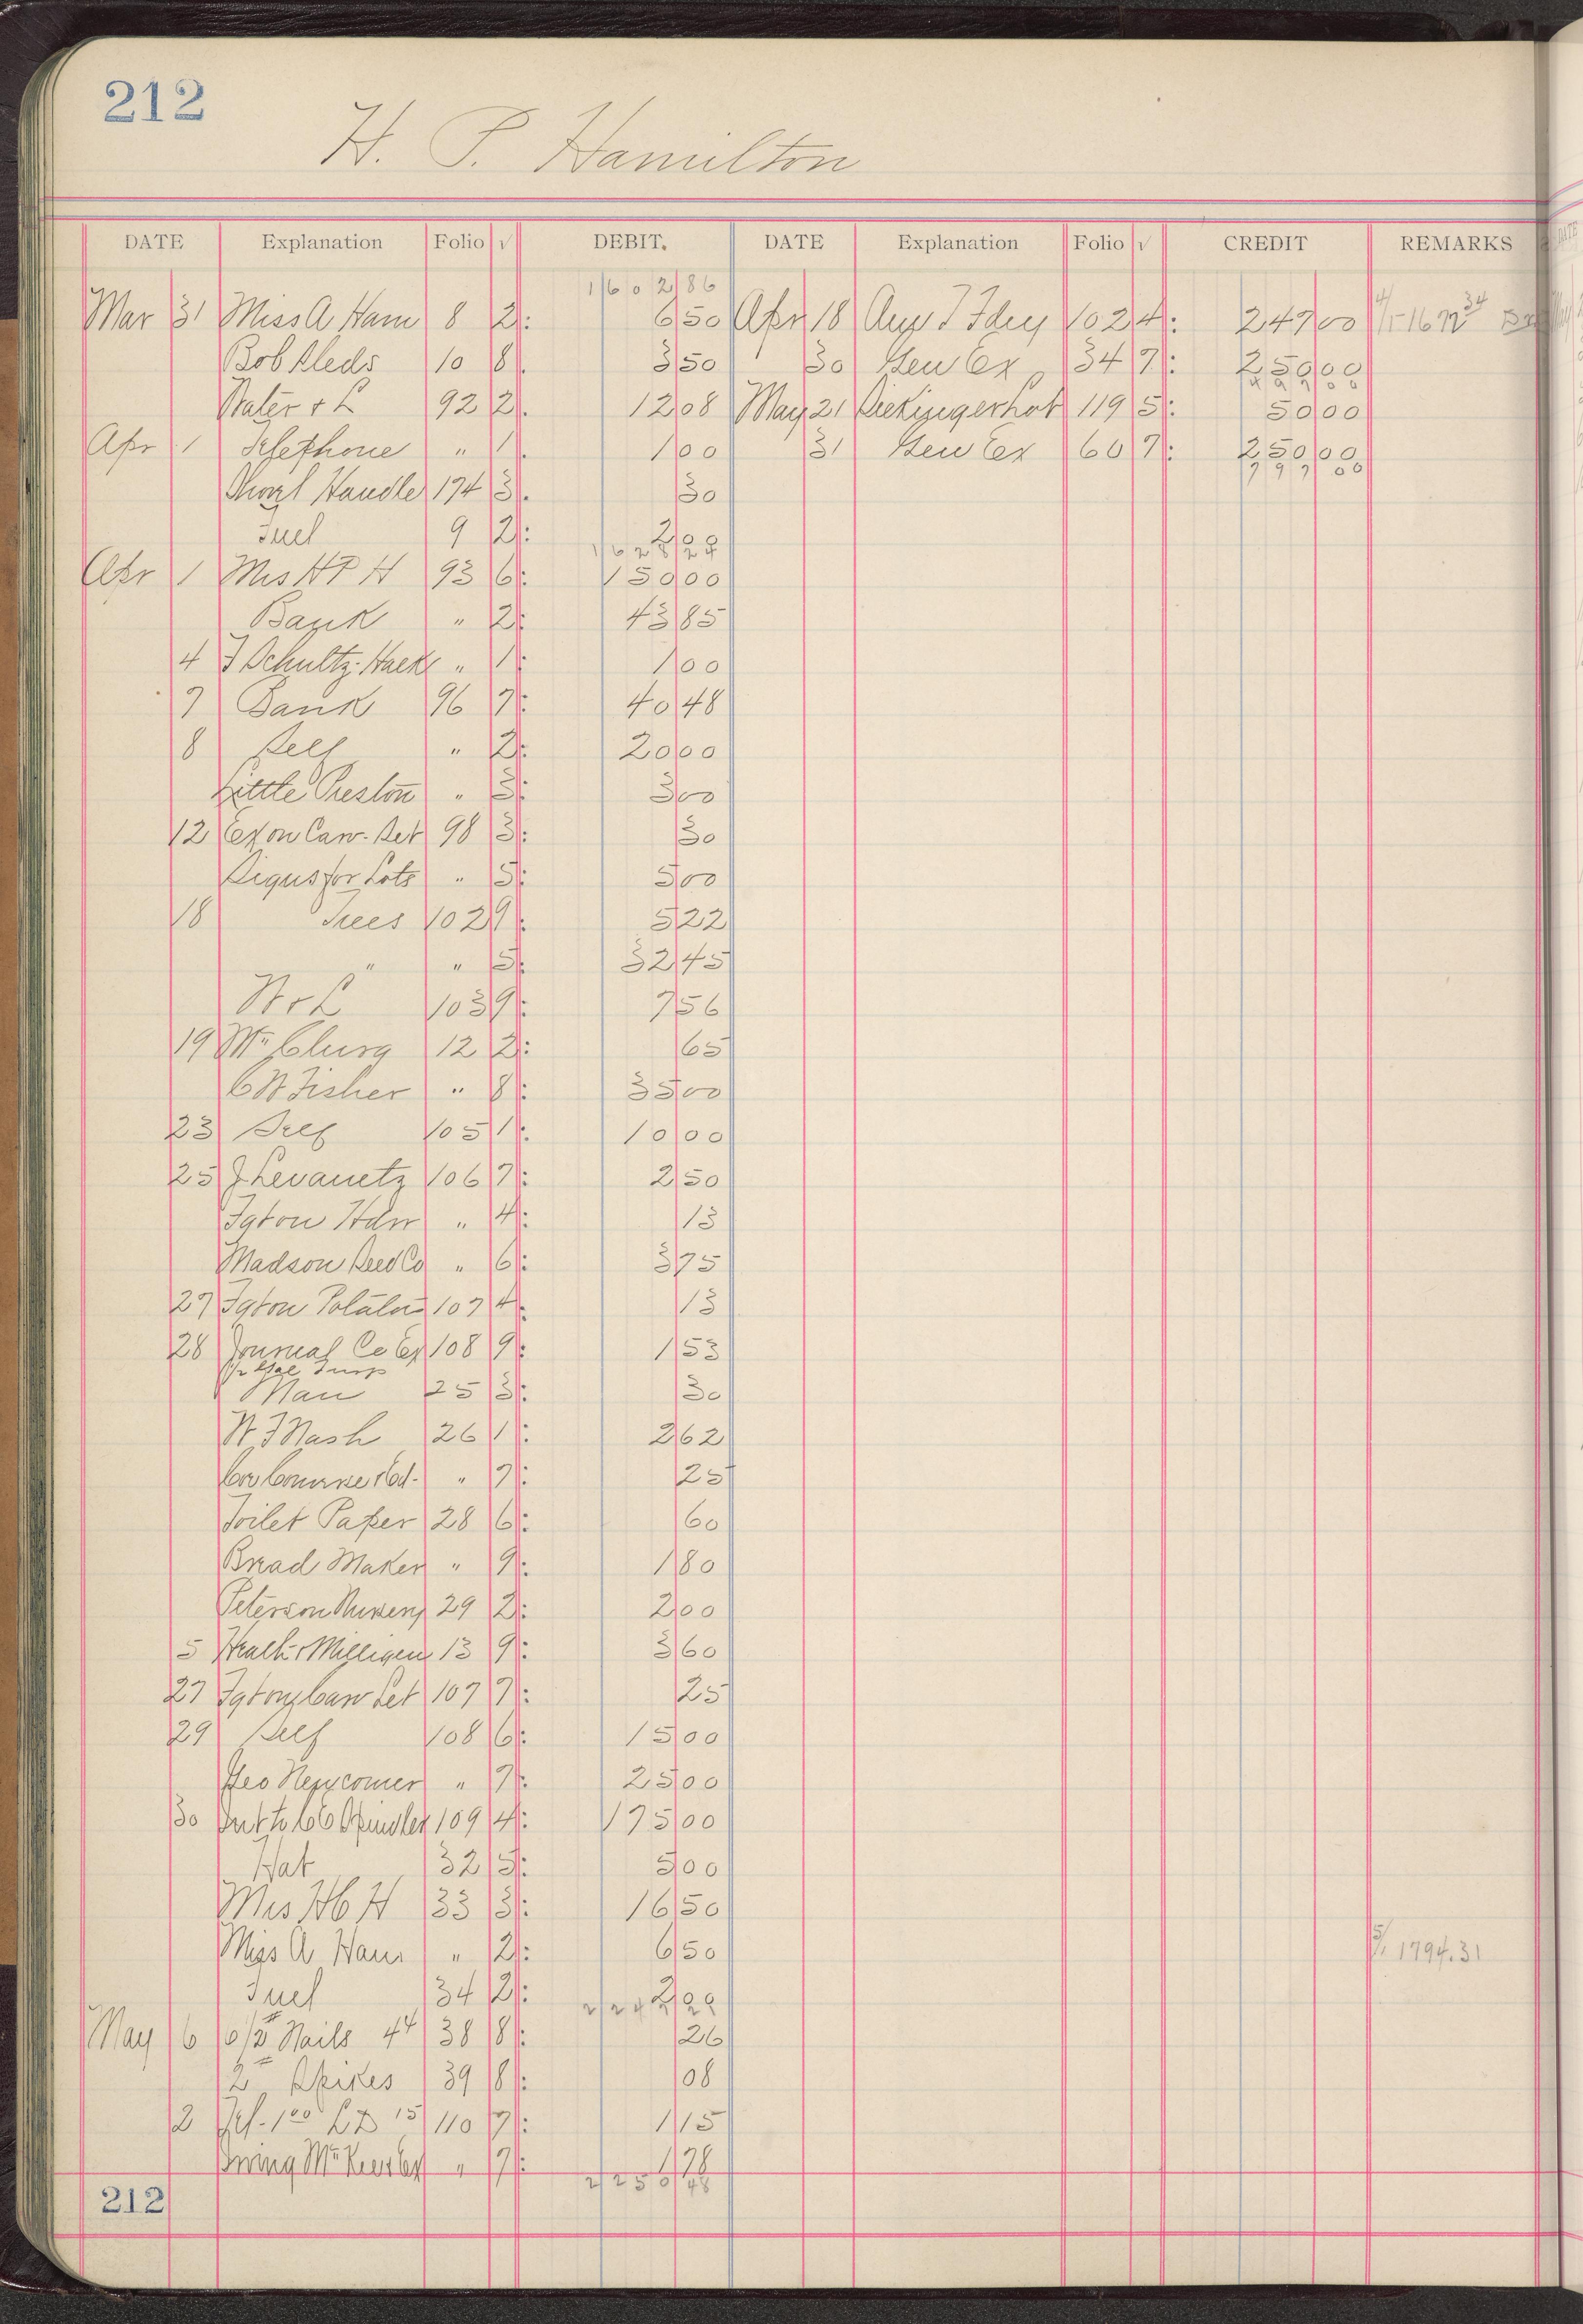 212
H. P. Hamilton
DATE Explanation Folio √ DEBIT. DATE Explanation Folio √ CREDIT REMARKS
1602 86
Mar 31 Miss A Ham 8 2 6 50 Apr 18 Aug T Fdry 102 4 247 00 1672 34
Bob Sleds 10 8 3 50 30 Gen Ex 34 7 250 00
497 00
Water & L 92 2 12 08 May 21 119 5 50 00
Apr 1 Telephone " 1 1 00 31 Gen Ex 60 7 250 00
797 00
Shovel Handle 174 3 30
Fuel 9 2 2 00
1628 24
Apr 1 Mrs H P H 93 6 150 00
Bank " 2 43 85
4 F Schultz-Hack " 1 1 00
7 Bank 96 7 40 48
8 Self " 2 20 00
Little Preston " 3 3 00
12 Ex on Caw-Set 98 3 30
Signs for Lots " 5 5 00
18 Trees 102 9 5 22
" " 5 32 45
W & L 103 9 7 56
19 McClurg 12 2 65
C W Fisher " 8 35 00
23 Self 105 1 10 00
25 J Levanetz 106 7 2 50
Fgt on Hdw " 4 13
Madson Seed Co " 6 3 75
27 Fgt on Potatoes 107 4 13
28 Journal Co Ex 108 9 1 53
Man 25 3 30
W F Nash 26 1 2 62
" 7 25
Toilet Paper 28 6 60
Bread Maker " 9 1 80
Peterson Nursery 29 2 2 00
5 Heath & Milligen 13 9 3 60
27 Fgt on Caw Set 107 7 25
29 Self 108 6 15 00
Geo Newcomer " 7 25 00
30 Int to C C Spindler 109 4 175 00
Hat 32 5 5 00
Mrs H C H 33 3 16 50
Miss A Ham " 2 6 50 5/1 1794.31
Fuel 34 2 2 00
May 6 Nails 44 38 8 26
2# Spikes 39 8 08
2 Tel-1 00 L D 15 110 7 1 15
" 7 1 78
2250 48
212